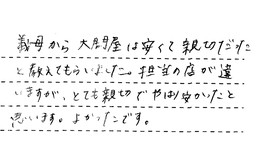 義母から大門屋は安くて親切だった
と教えてもらいました。担当の店が違
いますが、とても親切でやはり安かったと
思います。よかったです。